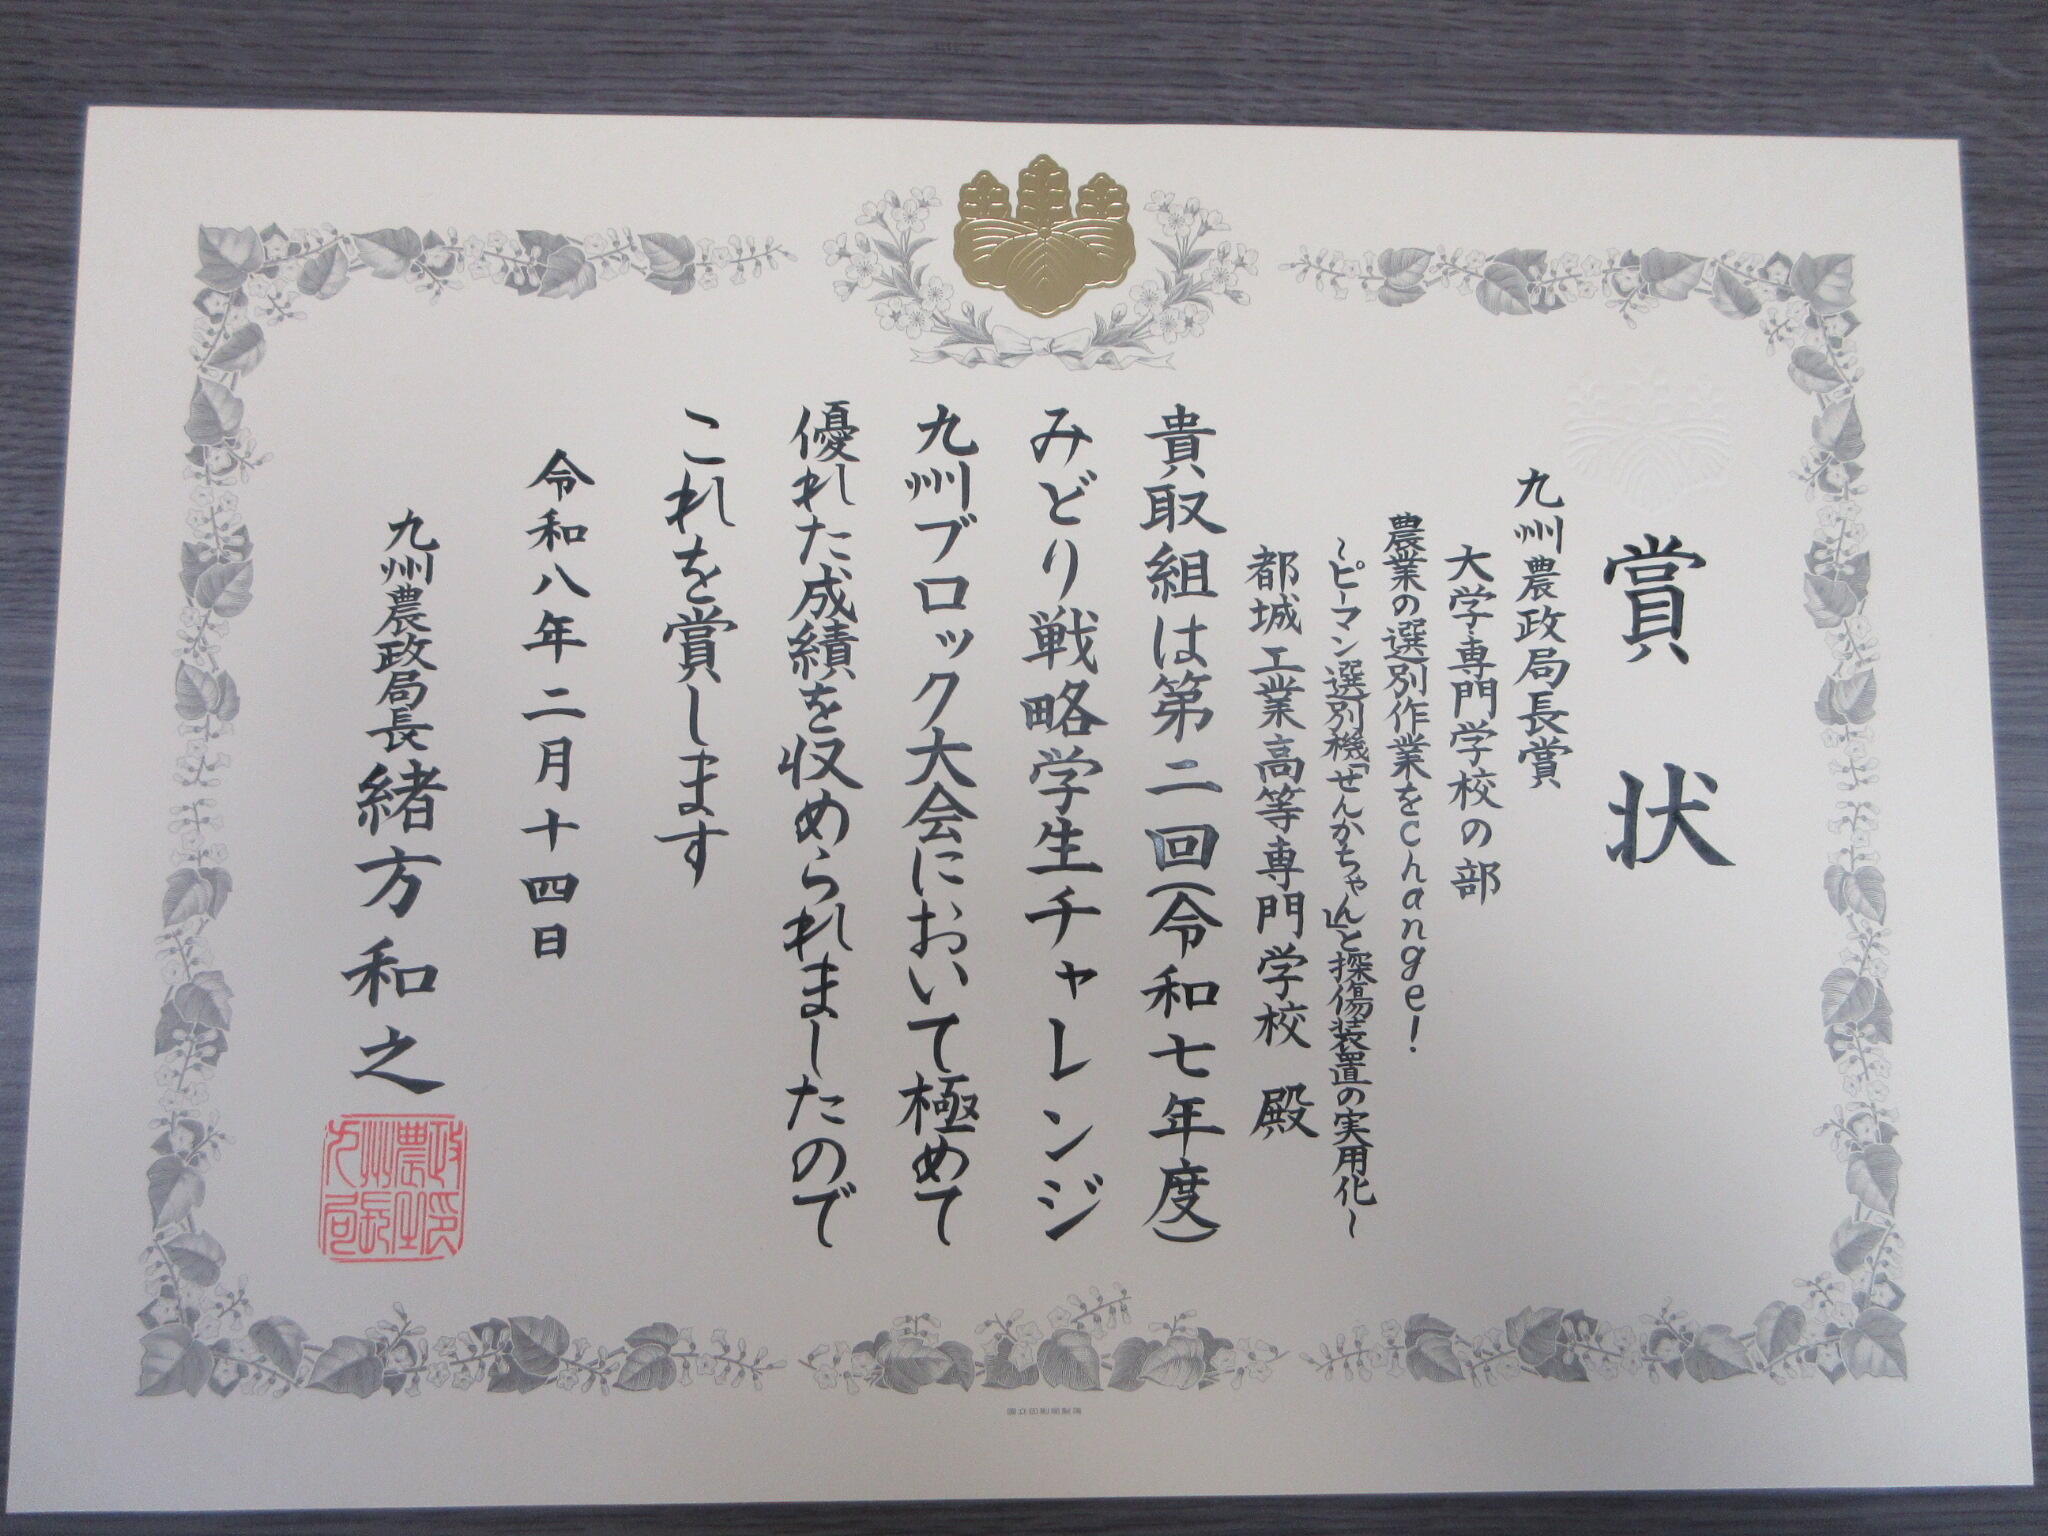 賞状
九州農政局長賞
大学・専門学校の部
農業の選別作業をchange!
~ピーマン選別機「せんかちゃん」と探傷装置の実用化~
都城工業高等専門学校 殿
貴取組は第二回(令和七年度)
みどり戦略学生チャレンジ
九州ブロック大会において極めて
優れた成績を収められましたので
これを賞します
令和八年二月十四日
九州農政局長 緒方和之
国立印刷局製造